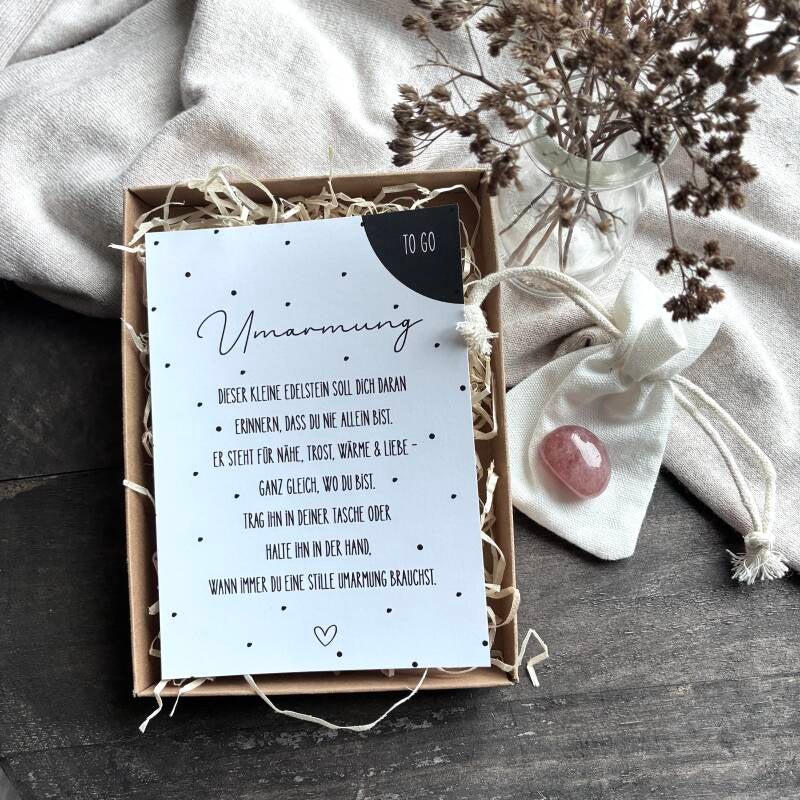 TO GO
Umarmung
DIESER KLEINE EDELSTEIN SOLL DICH DARAN
ERINNERN, DASS DU NIE ALLEIN BIST.
ER STEHT FÜR NÄHE, TROST, WÄRME & LIEBE –
GANZ GLEICH, WO DU BIST.
TRAG IHN IN DEINER TASCHE ODER
HALTE IHN IN DER HAND,
WANN IMMER DU EINE STILLE UMARMUNG BRAUCHST.